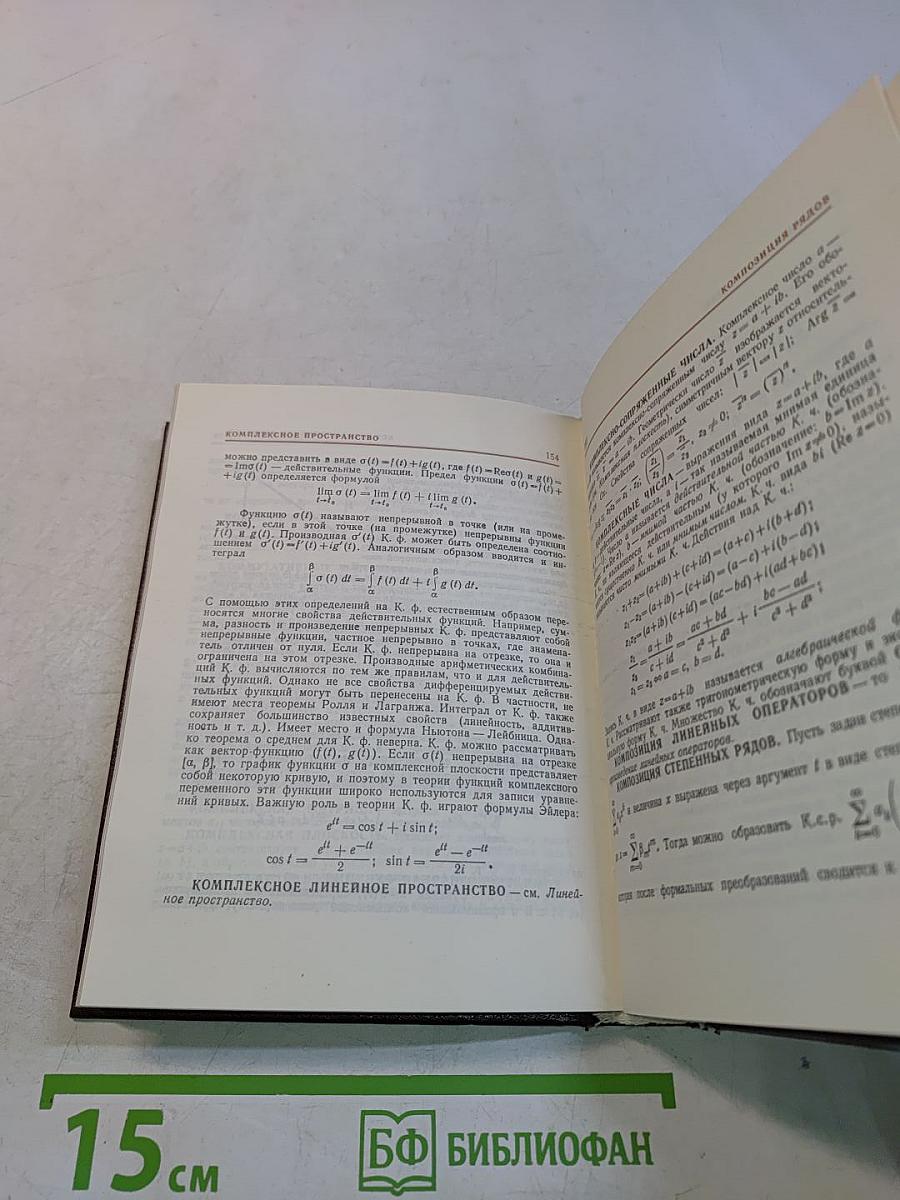 КОМПЛЕКСНОЕ ПРОСТРАНСТВО 154
можно представить в виде σ(t)=f(t)+ig(t), где f(t)=Reσ(t) и g(t)=
=Imσ(t) — действительные функции. Предел функции σ(t)=f(t)+
+ig(t) определяется формулой
lim σ (t) = lim f (t) + i lim g (t).
t→t₀ t→t₀ t→t₀
Функцию σ(t) называют непрерывной в точке (или на проме-
жутке), если в этой точке (на промежутке) непрерывны функции
f(t) и g(t). Производная σ′(t) К. ф. может быть определена соотно-
шением σ′(t)=f′(t)+ig′(t). Аналогичным образом вводится и ин-
теграл
β β β
∫ σ (t) dt = ∫ f (t) dt + i ∫ g (t) dt.
α α α
С помощью этих определений на К. ф. естественным образом пере-
носятся многие свойства действительных функций. Например, сум-
ма, разность и произведение непрерывных К. ф. представляют собой
непрерывные функции, частное непрерывно в точках, где знамена-
тель отличен от нуля. Если К. ф. непрерывна на отрезке, то она и
ограничена на этом отрезке. Производные арифметических комбина-
ций К. ф. вычисляются по тем же правилам, что и для действитель-
ных функций. Однако не все свойства дифференцируемых действи-
тельных функций могут быть перенесены на К. ф. В частности, не
имеют места теоремы Ролля и Лагранжа. Интеграл от К. ф. также
сохраняет большинство известных свойств (линейность, аддитив-
ность и т. д.). Имеет место и формула Ньютона — Лейбница. Одна-
ко теорема о среднем для К. ф. неверна. К. ф. можно рассматривать
как вектор-функцию (f(t), g(t)). Если σ(t) непрерывна на отрезке
[α, β], то график функции σ на комплексной плоскости представляет
собой некоторую кривую, и поэтому в теории функций комплексного
переменного эти функции широко используются для записи уравне-
ний кривых. Важную роль в теории К. ф. играют формулы Эйлера:
e^{it} = cos t + i sin t;
cos t = (e^{it} + e^{−it})/2; sin t = (e^{it} − e^{−it})/2i.
КОМПЛЕКСНОЕ ЛИНЕЙНОЕ ПРОСТРАНСТВО — см. Линей-
ное пространство.
КОМПОЗИЦИЯ РЯДОВ
СОПРЯЖЕННЫЕ ЧИСЛА. Комплексное число a —
комплексно-сопряженным числу z = a + ib. Его обо-
Геометрически число z̄ изображается векто-
плоскость), симметричным вектору z относитель-
Свойства сопряженных чисел: |z̄| = |z|; Arg z̄ =
z₂ ≠ 0;
КОМПЛЕКСНЫЕ ЧИСЛА — выражения вида z=a+ib, где a
действительные числа, а i — так называемая мнимая единица
Число a называется действительной частью К. ч. (обозна-
b — мнимой частью К. ч. (обозначение: b=Im z).
не являющееся действительным (у которого Im z≠0), назы-
мнимым числом. К. ч. вида bi (Re z=0)
часто мнимыми К. ч. Действия над К. ч.:
z₁+z₂=(a+ib)+(c+id)=(a+c)+i(b+d);
z₁−z₂=(a+ib)−(c+id)=(a−c)+i(b−d);
z₁z₂=(a+ib)(c+id)=(ac−bd)+i(ad+bc);
z₁/z₂ = (a+ib)/(c+id) = (ac+bd)/(c²+d²) + i (bc−ad)/(c²+d²);
z₁=z₂ ⇔ a=c, b=d.
К. ч. в виде z=a+ib называется алгебраической
Рассматривают также тригонометрическую форму и
форму К. ч. Множество К. ч. обозначают буквой
КОМПОЗИЦИЯ ЛИНЕЙНЫХ ОПЕРАТОРОВ — то
произведение линейных операторов.
КОМПОЗИЦИЯ СТЕПЕННЫХ РЯДОВ. Пусть задан
а величина x выражена через аргумент t в виде
Тогда можно образовать К.с.р.
после формальных преобразований сводится к
15 см
БФ БИБЛИОФАН